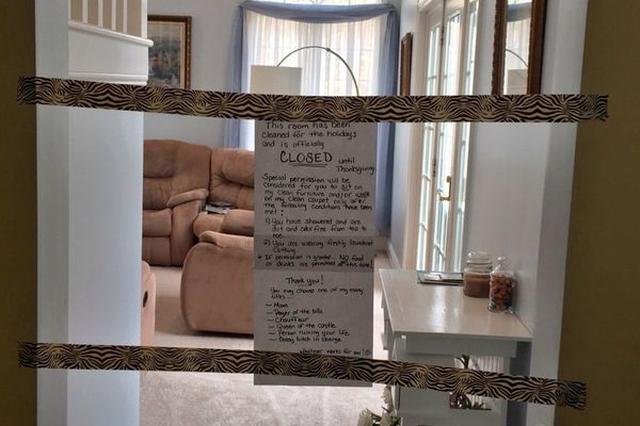 This room has been
cleaned for the holidays
and is officially
CLOSED until
Thanksgiving
Special permission will be
considered for you to sit on
my clean furniture and/or walk
on my clean carpet only after
the following conditions have been
met:
1) You have showered and are
dirt and odor free from top to
toe.
2) You are wearing freshly laundered
clothing.
* If permission is granted, NO food
or drinks are permitted at this time!
Thank you!
You may choose one of my many
titles...
- Mom
- Payer of the bills
- Chauffeur
- Queen of the castle
- Person ruining your life
- Bossy bitch in charge
whatever works for you